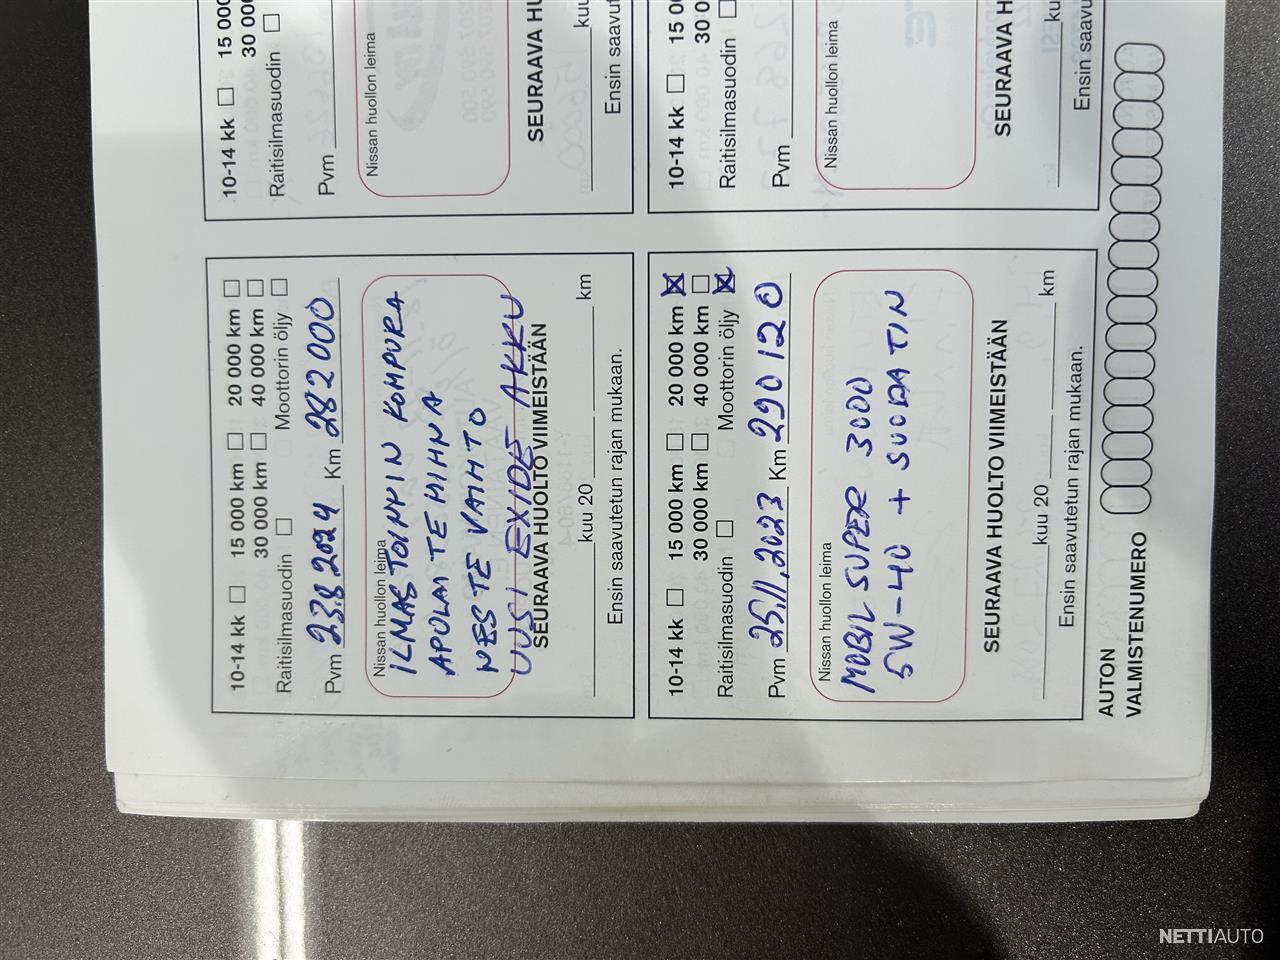 10-14 kk 15 000 km 20 000 km
30 000 km 40 000 km
Raitisilmasuodin Moottorin öljy
Pvm 23.8.2024 Km 282000
Nissan huollon leima
ILMASTOINNIN KOMPURA
APULAITEHIHNA
NESTE VAIHTO
UUSI EXIDE AKKU
SEURAAVA HUOLTO VIIMEISTÄÄN
kuu 20 km
Ensin saavutetun rajan mukaan.
10-14 kk 15 000
30 000
Raitisilmasuodin
Pvm
Nissan huollon leima
SEURAAVA HU
kuu
Ensin saavut
10-14 kk 15 000 km 20 000 km
30 000 km 40 000 km
Raitisilmasuodin Moottorin öljy
Pvm 25.11.2023 Km 290120
Nissan huollon leima
MOBIL SUPER 3000
5W-40 + SUODATIN
SEURAAVA HUOLTO VIIMEISTÄÄN
kuu 20 km
Ensin saavutetun rajan mukaan.
10-14 kk 15 00
30 0
Raitisilmasuodin
Pvm
Nissan huollon leima
SEURAAVA H
ku
Ensin saavu
AUTON
VALMISTENUMERO
NETTIAUTO